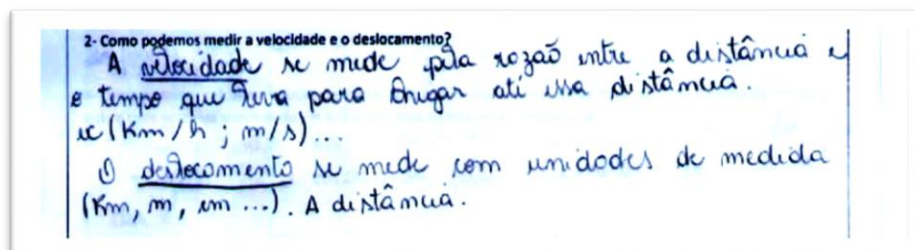 2- Como podemos medir a velocidade e o deslocamento?
A velocidade se mede pela razão entre a distância e
o tempo que leva para chegar até essa distância.
(Km/h ; m/s)...
O deslocamento se mede com unidades de medida
(Km, m, cm ...). A distância.